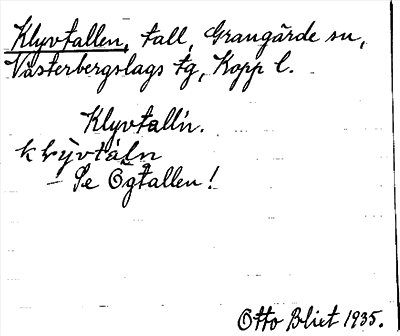 Klyvtallen, tall, Grangärde sn,
Västerbergslags tg, Kopp l.
Klyvtall'n.
klỳvtáln
– Se Ögtallen!
Otto Blixt 1935.